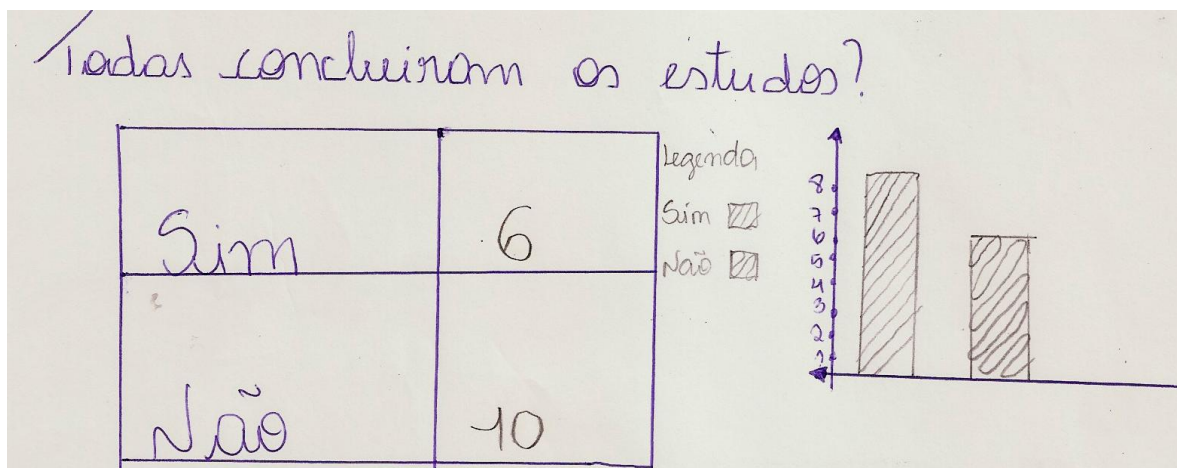 Todas concluiram os estudos?
Sim 6
Não 10
Legenda
Sim
Não
8
7
6
5
4
3
2
1